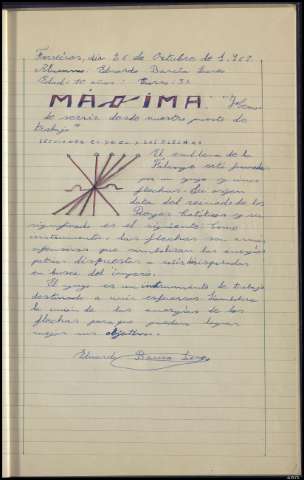 Ferreiros, día 26 de Octubre de 1.962.
Alumno: Eduardo García
Edad: 10 años. Curso: 3º
MÁXIMA: "Hemos
de servir desde nuestro puesto de
trabajo"
El emblema de la
Falange está formado
por un yugo y unas
flechas. Su origen
data del reinado de los
Reyes Católicos y su
significado es el siguiente: Como
instrumento, las flechas son armas
ofensivas que simbolizan las energías
patrias dispuestas a ser disparadas
en busca del imperio.
El yugo es un instrumento de trabajo
destinado a unir esfuerzos. Simboliza
la unión de las energías de las
flechas para que puedan lograr
mejor sus objetivos.
Eduardo García